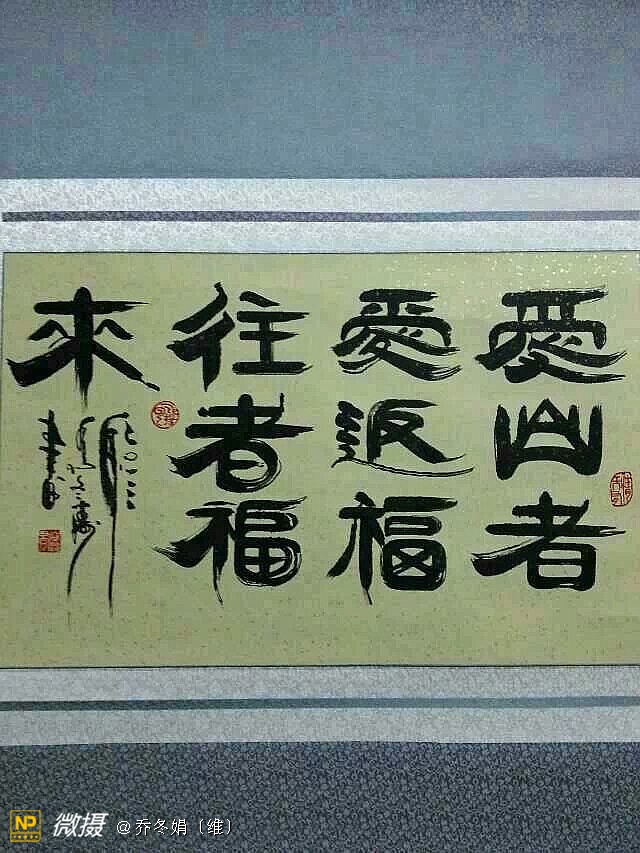 愛出者
愛返福
往者福
來
NP 微摄 @乔冬娟〔维〕